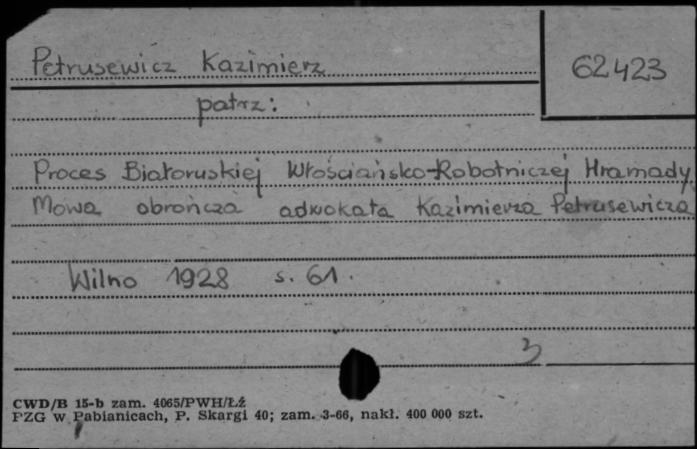 Petrusewicz Kazimierz
62423
patrz:
Proces Białoruskiej Włościańsko-Robotniczej Hramady
Mowa obrończa adwokata Kazimierza Petrusewicza
Wilno 1928 s. 61.
3
CWD/B 15-b zam. 4065/PWH/ŁŹ
PZG w Pabianicach, P. Skargi 40; zam. 3-66, nakł. 400 000 szt.